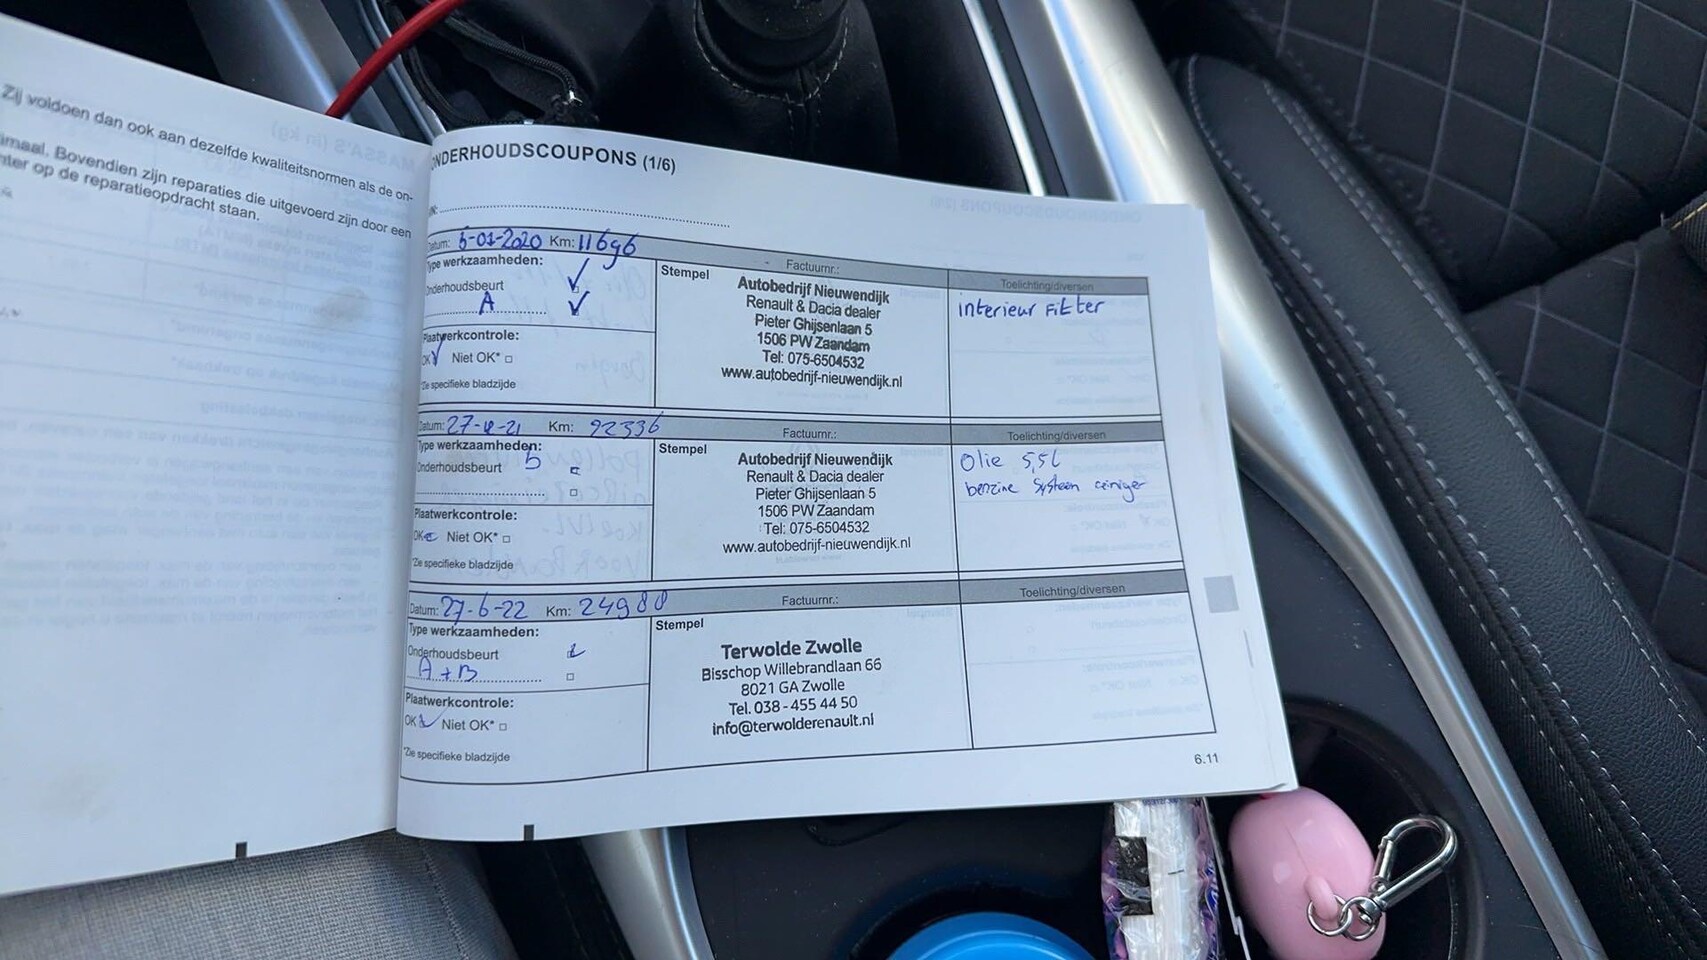 Zij voldoen dan ook aan dezelfde kwaliteitsnormen als de on-
imaal. Bovendien zijn reparaties die uitgevoerd zijn door een
nter op de reparatieopdracht staan.
NDERHOUDSCOUPONS (1/6)
Datum: 6-01-2020 Km: 11696
Type werkzaamheden:
Onderhoudsbeurt
A
Plaatwerkcontrole:
OK Niet OK*
*Zie specifieke bladzijde
Factuurnr.:
Stempel
Autobedrijf Nieuwendijk
Renault & Dacia dealer
Pieter Ghijsenlaan 5
1506 PW Zaandam
Tel: 075-6504532
www.autobedrijf-nieuwendijk.nl
Toelichting/diversen
interieur Filter
Datum: 27-12-21 Km: 92336
Type werkzaamheden:
Onderhoudsbeurt
Plaatwerkcontrole:
OK Niet OK*
*Zie specifieke bladzijde
Factuurnr.:
Stempel
Autobedrijf Nieuwendijk
Renault & Dacia dealer
Pieter Ghijsenlaan 5
1506 PW Zaandam
Tel: 075-6504532
www.autobedrijf-nieuwendijk.nl
Toelichting/diversen
Olie 5,5L
benzine systeem reiniger
Datum: 27-6-22 Km: 24988
Type werkzaamheden:
Onderhoudsbeurt
A+B
Plaatwerkcontrole:
OK Niet OK*
*Zie specifieke bladzijde
Factuurnr.:
Stempel
Terwolde Zwolle
Bisschop Willebrandlaan 66
8021 GA Zwolle
Tel. 038 - 455 44 50
info@terwolderenault.nl
Toelichting/diversen
6.11